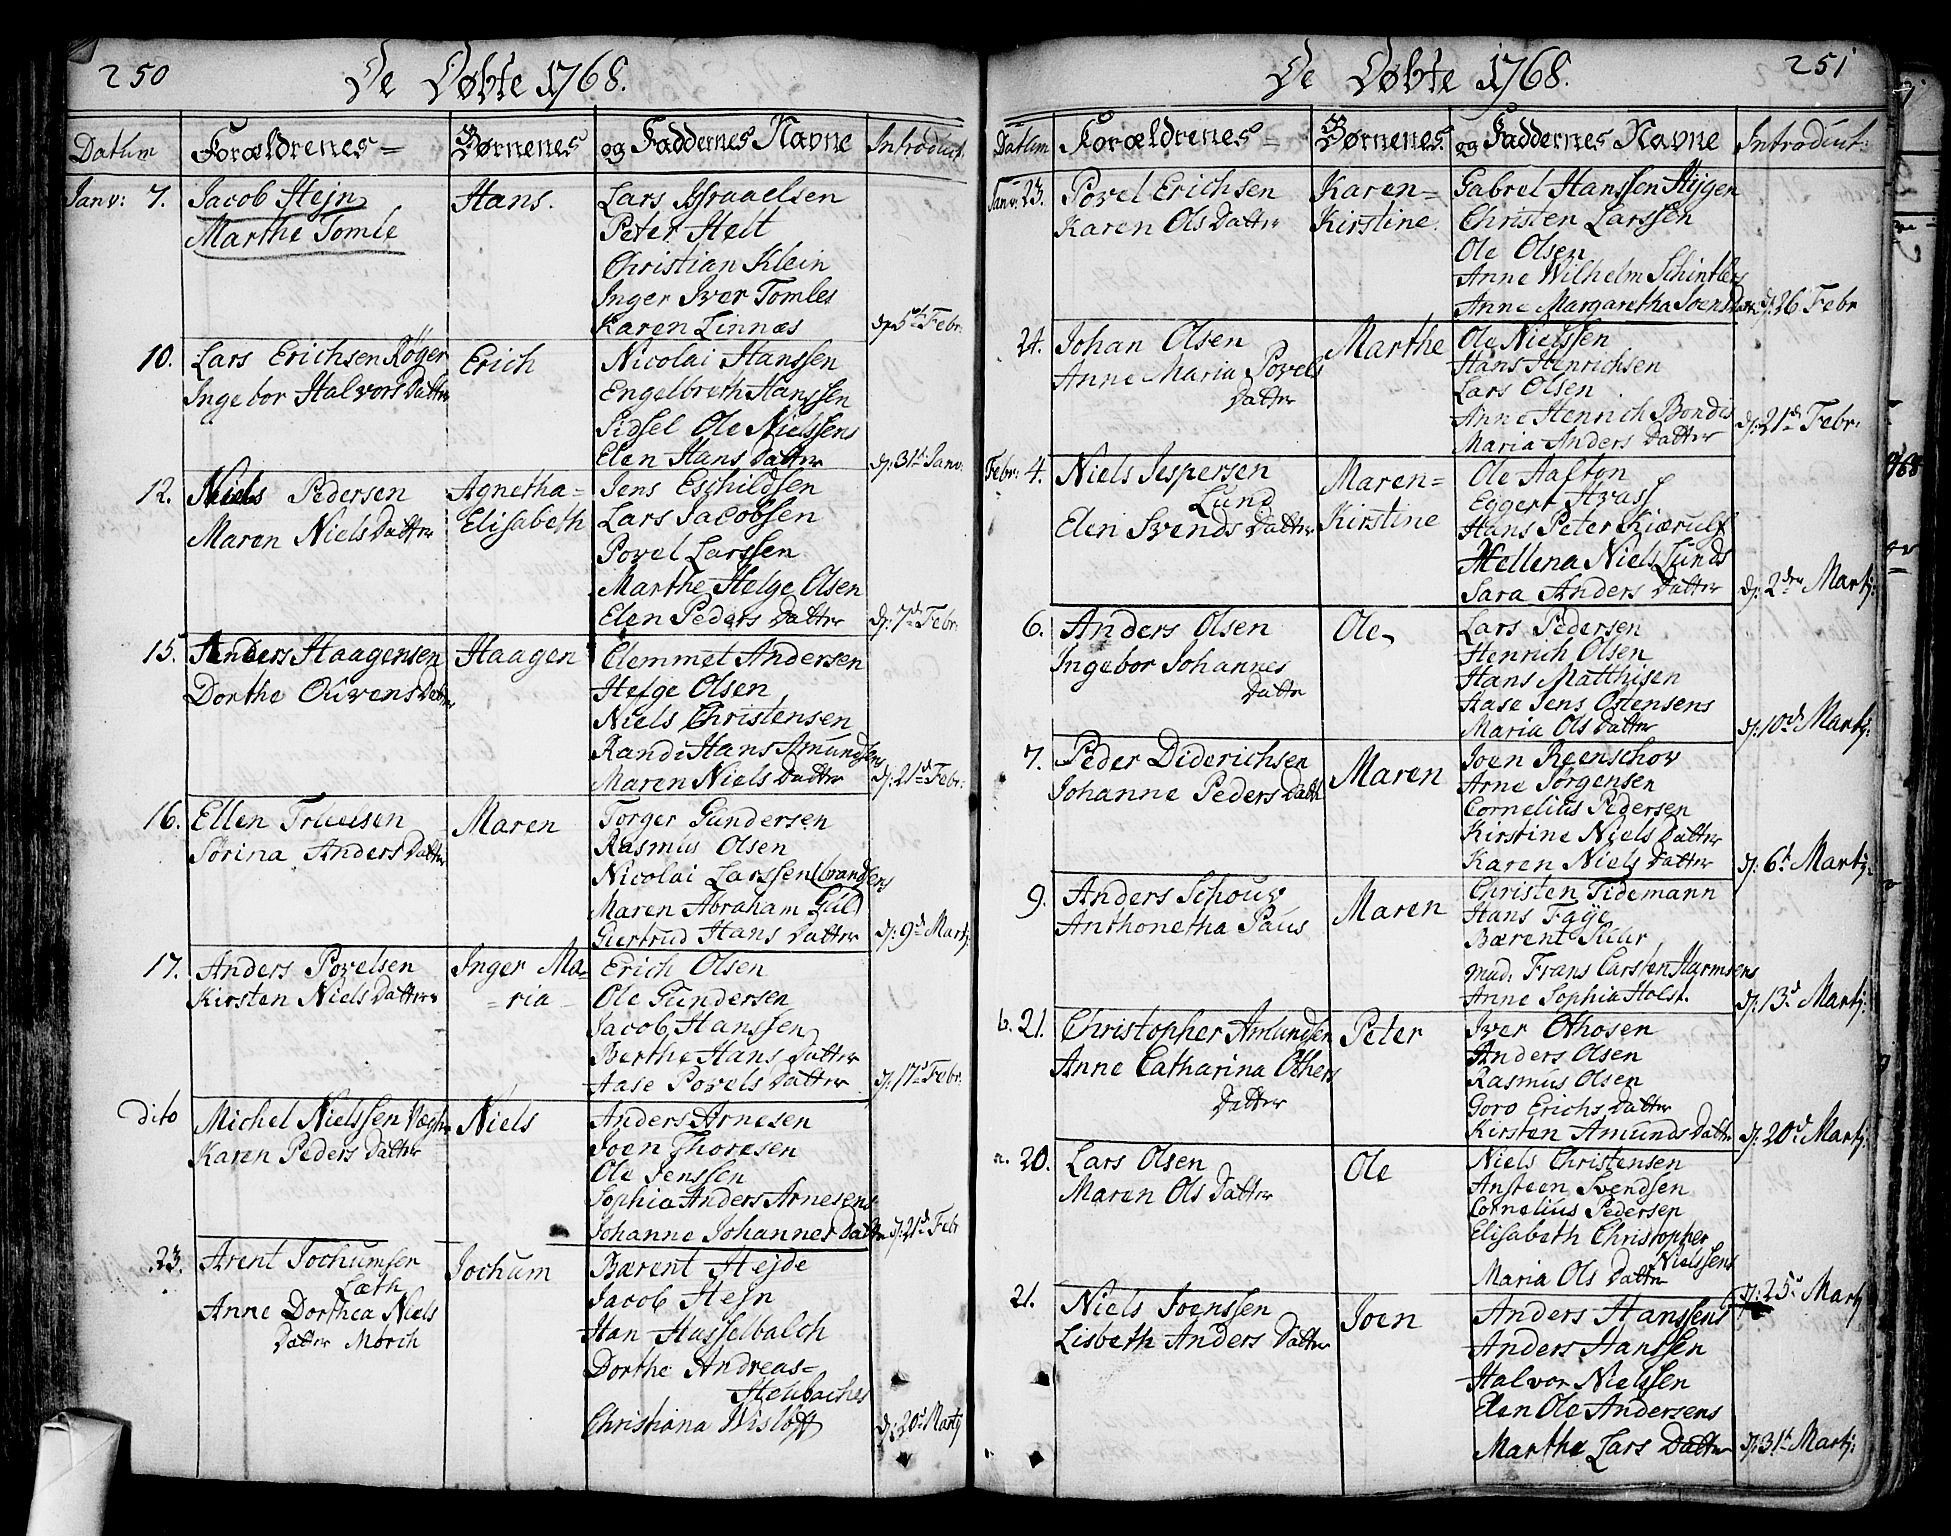 250
De Døbte 1768.
Datum
Forældrenes =
Børnenes
og Faddernes Navne
Introduct.
Janv: 7.
Jacob Hejn
Marthe Tomle
Hans.
Lars Israaelsen
Peter Helt
Christian Klein
Inger Iver Tomles
Karen Linnæs
d: 5t Febr:
10.
Lars Erichsen Røger
Ingebor Halvors Datter
Erich
Nicolai Hanssen
Engelbreth Hanssen
Sidsel Ole Nielssens
Elen Hans Datter
d: 31t Janv:
12.
Niels Pedersen
Maren Niels Datter
Agnetha=
Elisabeth
Jens Eschildsen
Lars Jacobsen
Povel Larssen
Marthe Helge Olsen
Elen Peders Datter
d: 7d Febr:
15.
Anders Haagensen
Dorthe Ouvens Datter
Haagen
Clemmet Andersen
Helge Olsen
Niels Christensen
Randi Hans Amundsens
Maren Niels Datter
d: 21d Febr:
16.
Ellen Truelsen
Sørina Anders Datter
Maren
Torger Gundersen
Rasmus Olsen
Nicolai Larssen Ubrandsens
Maren Abraham Guld
Giertrud Hans Datter
d: 9d Martj:
17.
Anders Povelsen
Kirsten Niels Datter
Inger Ma-
=ria
Erich Olsen
Ole Gundersen
Jacob Hanssen
Berthe Hans Datter
Aase Povels Datter
d: 17d Febr:
dito
Michel Nielssen
Karen Peders Datter
Niels
Anders Arnesen
Joen Thoresen
Ole Jenssen
Sophia Anders Arnesens
Johanne Johannes Datter
d: 21d Febr
23.
Arent Jochumsen
Læth
Anne Dorthea Niels
Datter Morch
Jochum
Bærent Hejde
Jacob Hejn
Han Hasselbalch
Dorthe Andreas=
Heubaches
Christiana Wisløff
d: 20d Martj
251
De Døbte 1768.
Datum
Forældrenes =
Børnenes
og Faddernes Navne
Introduct:
Janv: 23.
Povel Erichsen
Karen Ols Datter
Karen=
Kirstine
Gabrel Hanssen Hijgen
Christen Larssen
Ole Olsen
Anne Wilhelm Schintlers
Anne Margaretha Joens Datter
d: 26 Febr
24.
Johan Olsen
Anne Maria Povels
Datter
Marthe
Ole Nielssen
Hans Henrichsen
Lars Olsen
Anne Henrich Bondes
Maria Anders Datter
d: 21d Febr:
Febr: 4.
Niels Jespersen
Lund
Elen Svends Datter
Maren=
Kirstine
Ole Aafton
Eggert Hvass
Hans Peter Kiærulf
Hellena Niels Lunds
Sara Anders Datter
d: 2den Martj:
6.
Anders Olsen
Ingebor Johannes
Datter
Ole
Lars Pedersen
Henrich Olsen
Hans Matthisen
Aase Jens Ostensens
Maria Ols Datter
d: 10d Martj:
7.
Peder Diderichsen
Johanne Peders Datter
Maren
Joen Reenschov
Arne Jørgensen
Cornelius Pedersen
Kirstine Niels Datter
Karen Niels Datter
d: 6t Martj:
9.
Anders Schouv
Anthonetha Paus
Maren
Christen Tidemann
Hans Faÿe
Bærent
Mad: Frans Carsten Harmsens
Anne Sophia Holst.
d: 13d Martj:
b. 21.
Christopher Amundsen
Anne Catharina Others
Datter
Peter
Iver Othosen
Anders Olsen
Rasmus Olsen
Goro Erichs Datter
Kirsten Amunds Datter
d: 20d Martj:
a. 20.
Lars Olsen
Maren Ols Datter
Ole
Niels Christensen
Ansteen Svendsen
Cornelius Pedersen
Elisabeth Christopher
Nielssens
Maria Ols Datter
d: 25d Martj
21.
Niels Joenssen
Lisbeth Anders Datter
Joen
Anders Hanssens
Anders Hanssen
Halvor Nielssen
Elen Ole Andersens
Marthe Lars Datter
d: 31t Martj: